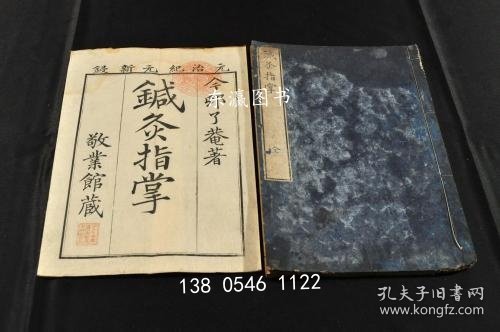 元治紀元新鋟
今邨了菴著
鍼灸指掌
敬業館蔵
鍼灸指
全
东瀛图书
138 0546 1122
孔夫子旧书网
www.kongfz.com